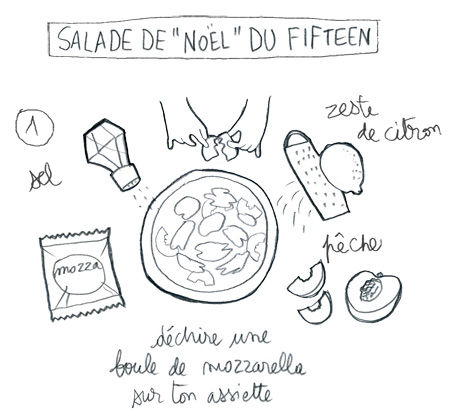 SALADE DE "NOËL" DU FIFTEEN
1
zeste
de citron
sel
mozza
pêche
déchire une
boule de mozzarella
sur ton assiette